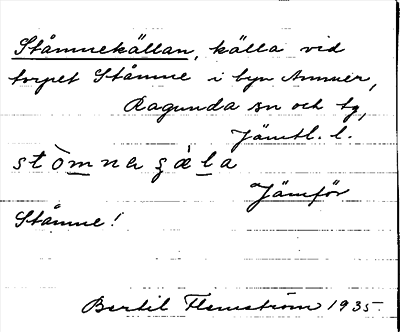 Ståmnekällan, källa vid
torpet Ståmne i byn Ammer,
Ragunda sn och tg,
Jämtl. l.
stòmnaʂàla
Jämför
Ståmne!
Bertil Flemström 1935.